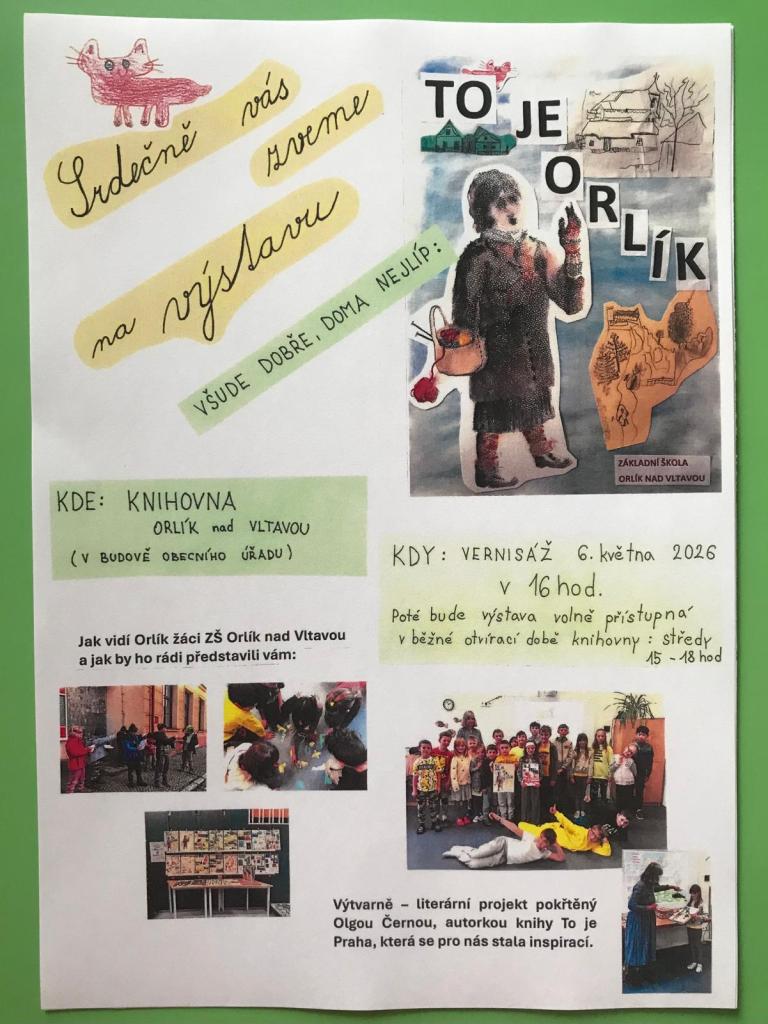 Srdečně vás
zveme
na výstavu
VŠUDE DOBŘE, DOMA NEJLÍP:
TO JE
ORLÍK
ZÁKLADNÍ ŠKOLA
ORLÍK NAD VLTAVOU
KDE: KNIHOVNA
ORLÍK nad VLTAVOU
(V BUDOVĚ OBECNÍHO ÚŘADU)
KDY: VERNISÁŽ 6. května 2026
v 16 hod.
Poté bude výstava volně přístupná
v běžné otvírací době knihovny: středy
15 - 18 hod
Jak vidí Orlík žáci ZŠ Orlík nad Vltavou
a jak by ho rádi představili vám:
Výtvarně – literární projekt pokřtěný
Olgou Černou, autorkou knihy To je
Praha, která se pro nás stala inspirací.